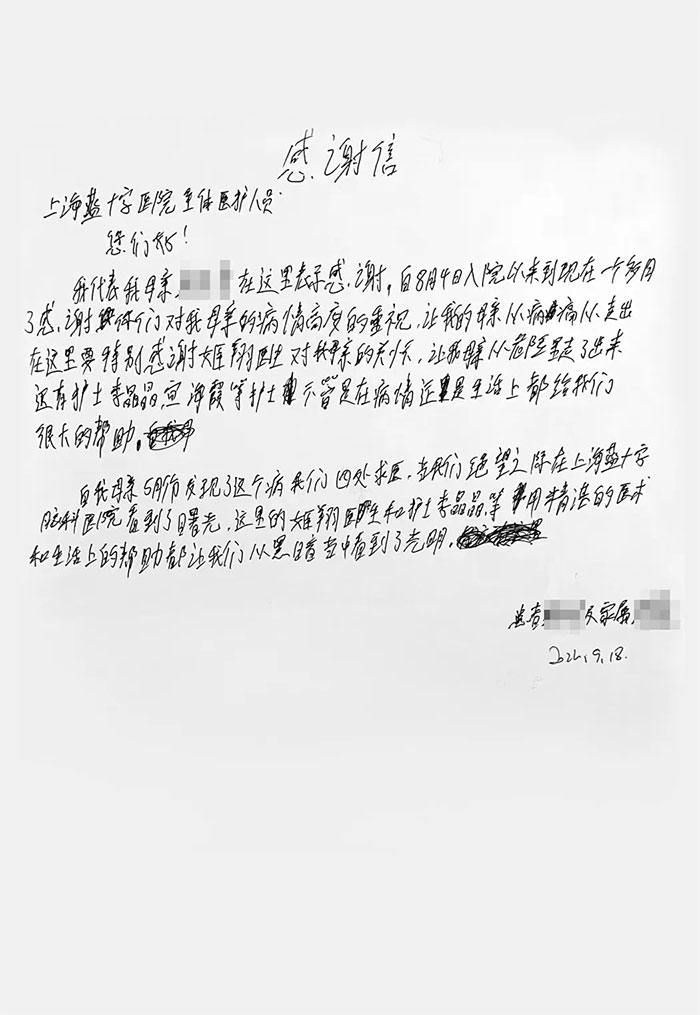 感谢信
上海蓝十字医院全体医护人员
您们好!
我代表我母亲 在这里表示感谢,自8月4日入院以来到现在一个多月
了感谢 你们对我母亲的病情高度的重视,让我的母亲从病痛从走出
在这里要特别感谢姬翔医生对我母亲的关怀,让我母亲从危险里走了出来
还有护士李晶晶,宣海霞等护士 不管是在病情还是生活上都给我们
很大的帮助。
自我母亲5月份发现了这个病我们四处求医,在我们绝望之际在上海蓝十字
脑科医院看到了曙光,这里的姬翔医生和护士李晶晶等 用精湛的医术
和生活上的帮助都让我们从黑暗当中看到了光明。
患者 及家属
9.18.